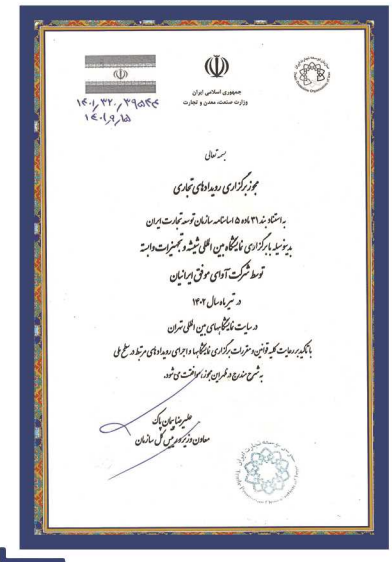 جمهوری اسلامی ایران
وزارت صنعت، معدن و تجارت
۱۴۰۱/۳۲۰/۳۹۵۴۴
۱۴۰۱/۹/۱۵
بسمه تعالی
مجوز برگزاری رویدادهای تجاری
به استناد بند ۳۱ ماده ۵ اساسنامه سازمان توسعه تجارت ایران
بدینوسیله با برگزاری نمایشگاه بین المللی شیشه و تجهیزات وابسته
توسط شرکت آوای موفق ایرانیان
در تیر ماه سال ۱۴۰۲
در سایت نمایشگاههای بین المللی تهران
با تأکید بر رعایت کلیه قوانین و مقررات برگزاری نمایشگاهها و اجرای رویدادهای مرتبط در سطح ملی
به شرح مندرج در ظهر این مجوز، موافقت می شود.
علیرضا پیمان پاک
معاون وزیر و رییس کل سازمان